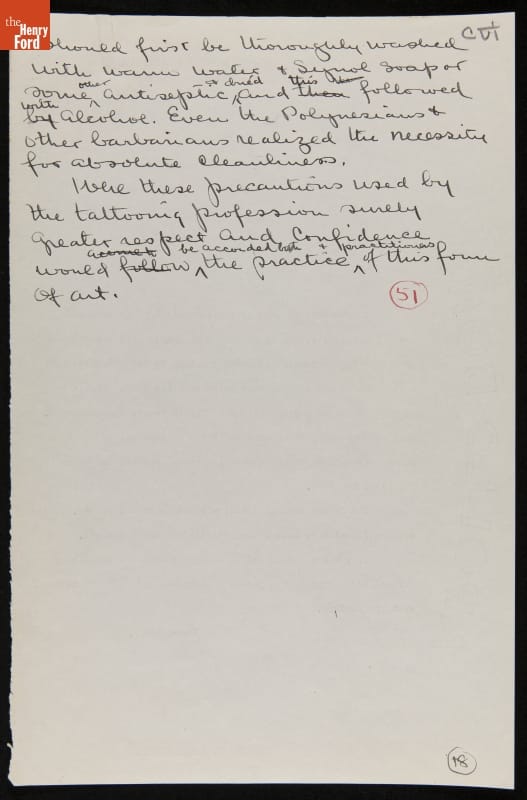 the
Henry
Ford
CVI
should first be thoroughly washed
with warm water & Synol soap or
some other Antiseptic, & dried and this followed
with Alcohol. Even the Polynesians &
other barbarians realized the necessity
for absolute cleanliness.
Were these precautions used by
the tattooing profession surely
greater respect and confidence
be accorded both & practitioners
would follow the practice of this form
of art.
51
18